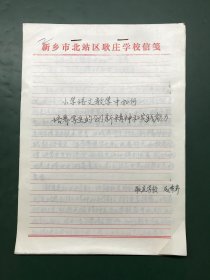 新乡市北站区耿庄学校信笺
小学语文教学中如何
培养学生的创新精神和实践能力
耿庄学校